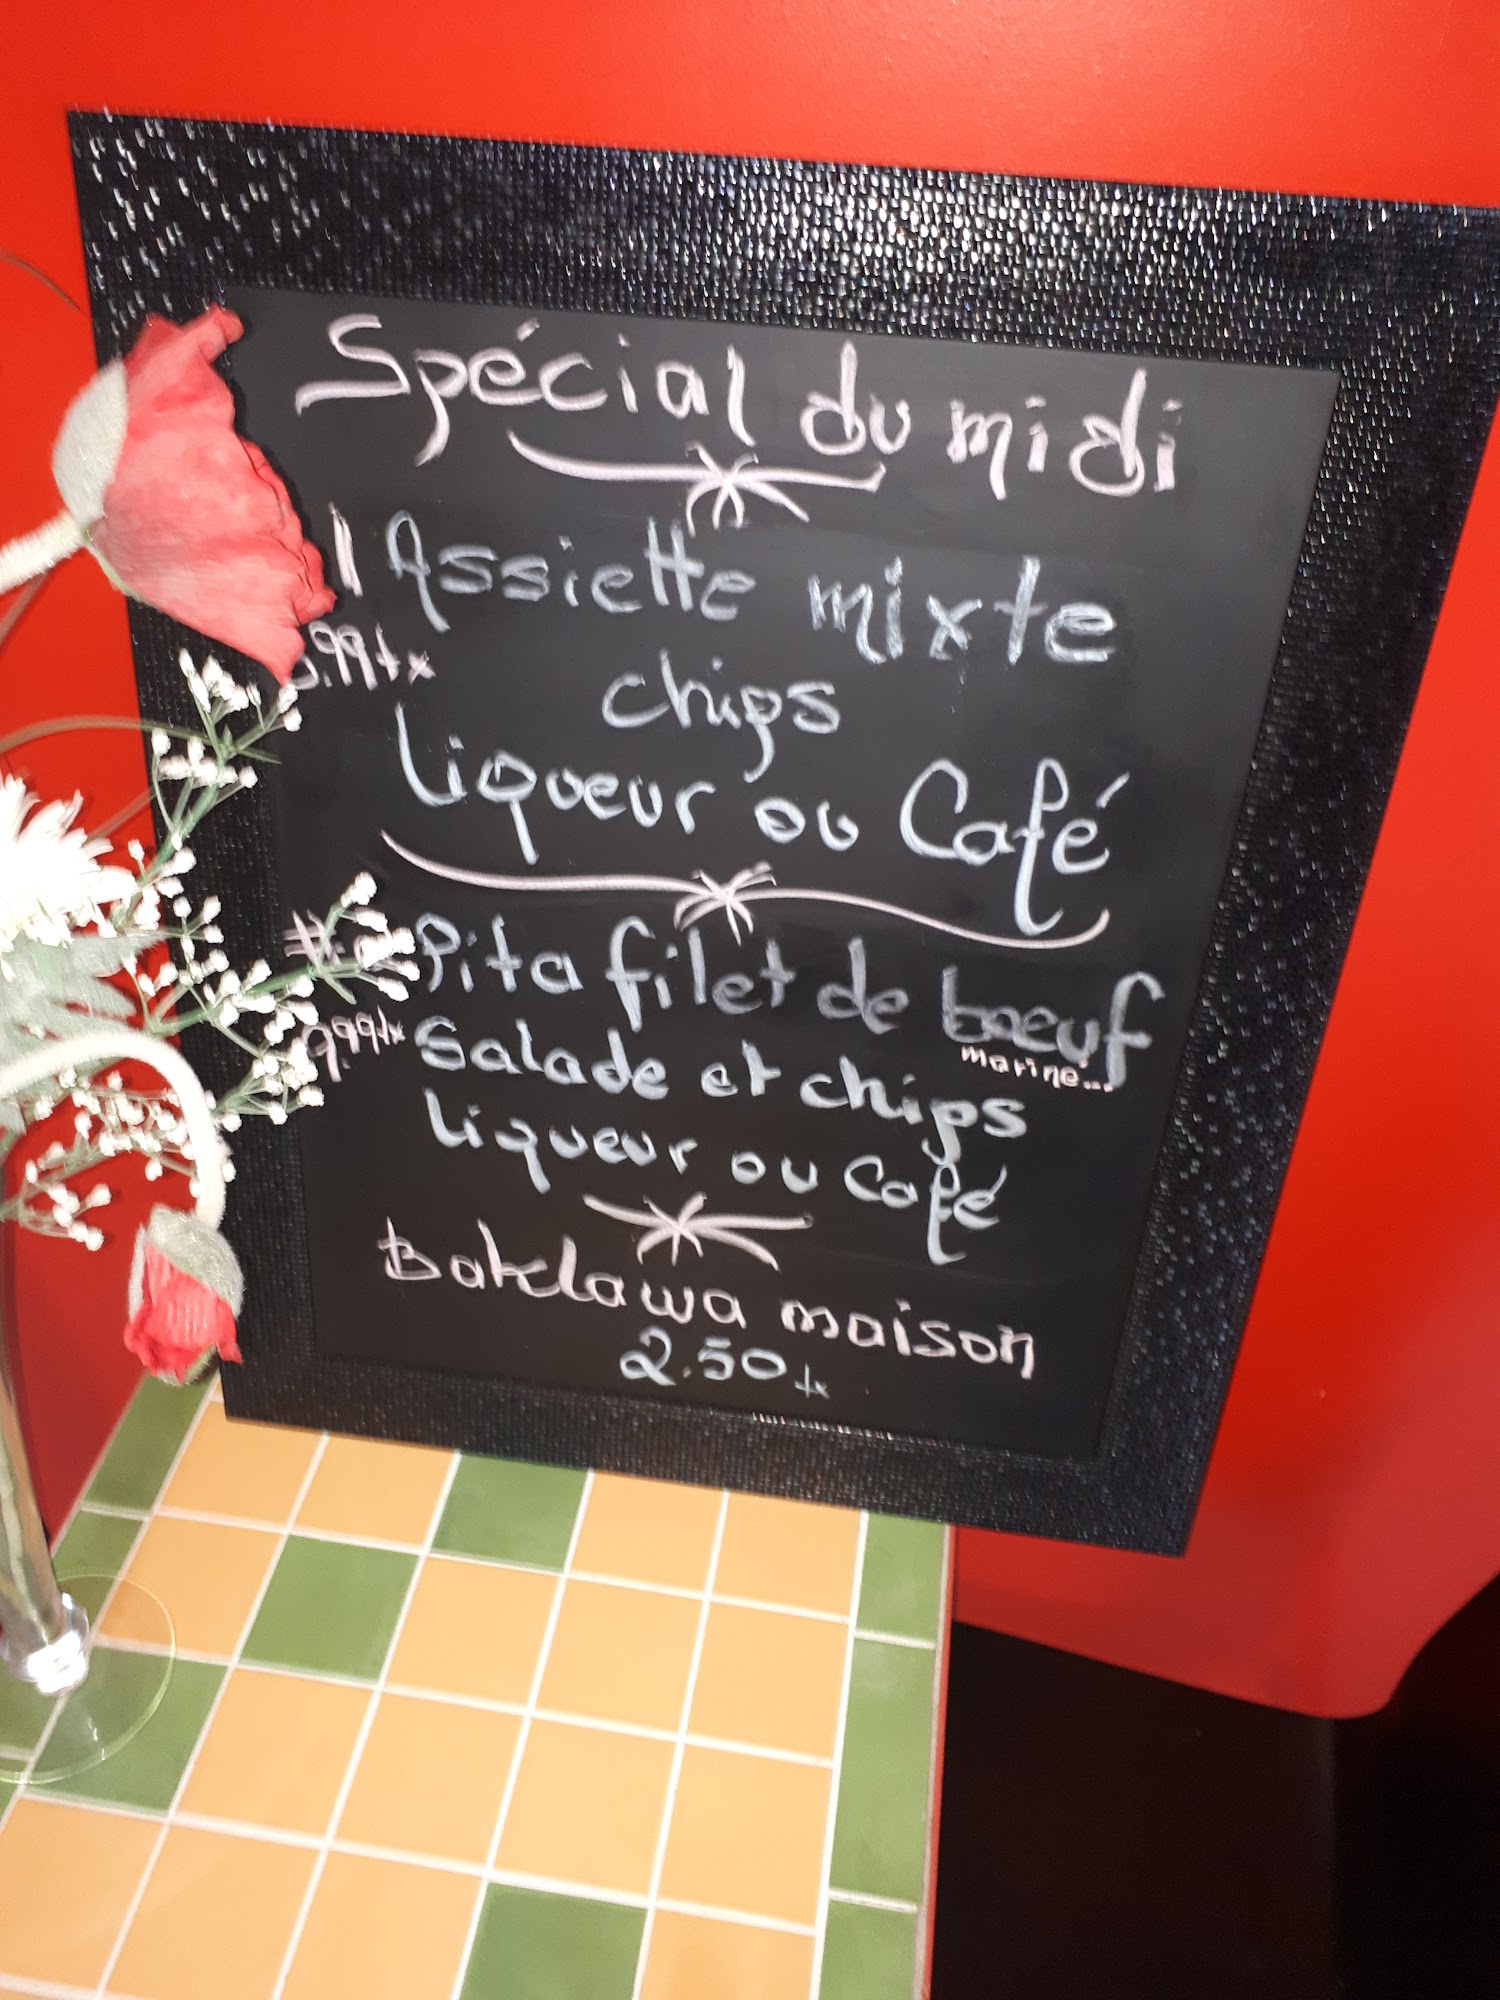 Spécial du midi
1 Assiette mixte
.99+x
chips
Liqueur ou Café
Pita filet de boeuf
mariné...
9.99tx Salade et chips
Liqueur ou Café
Baklawa maison
2.50tx